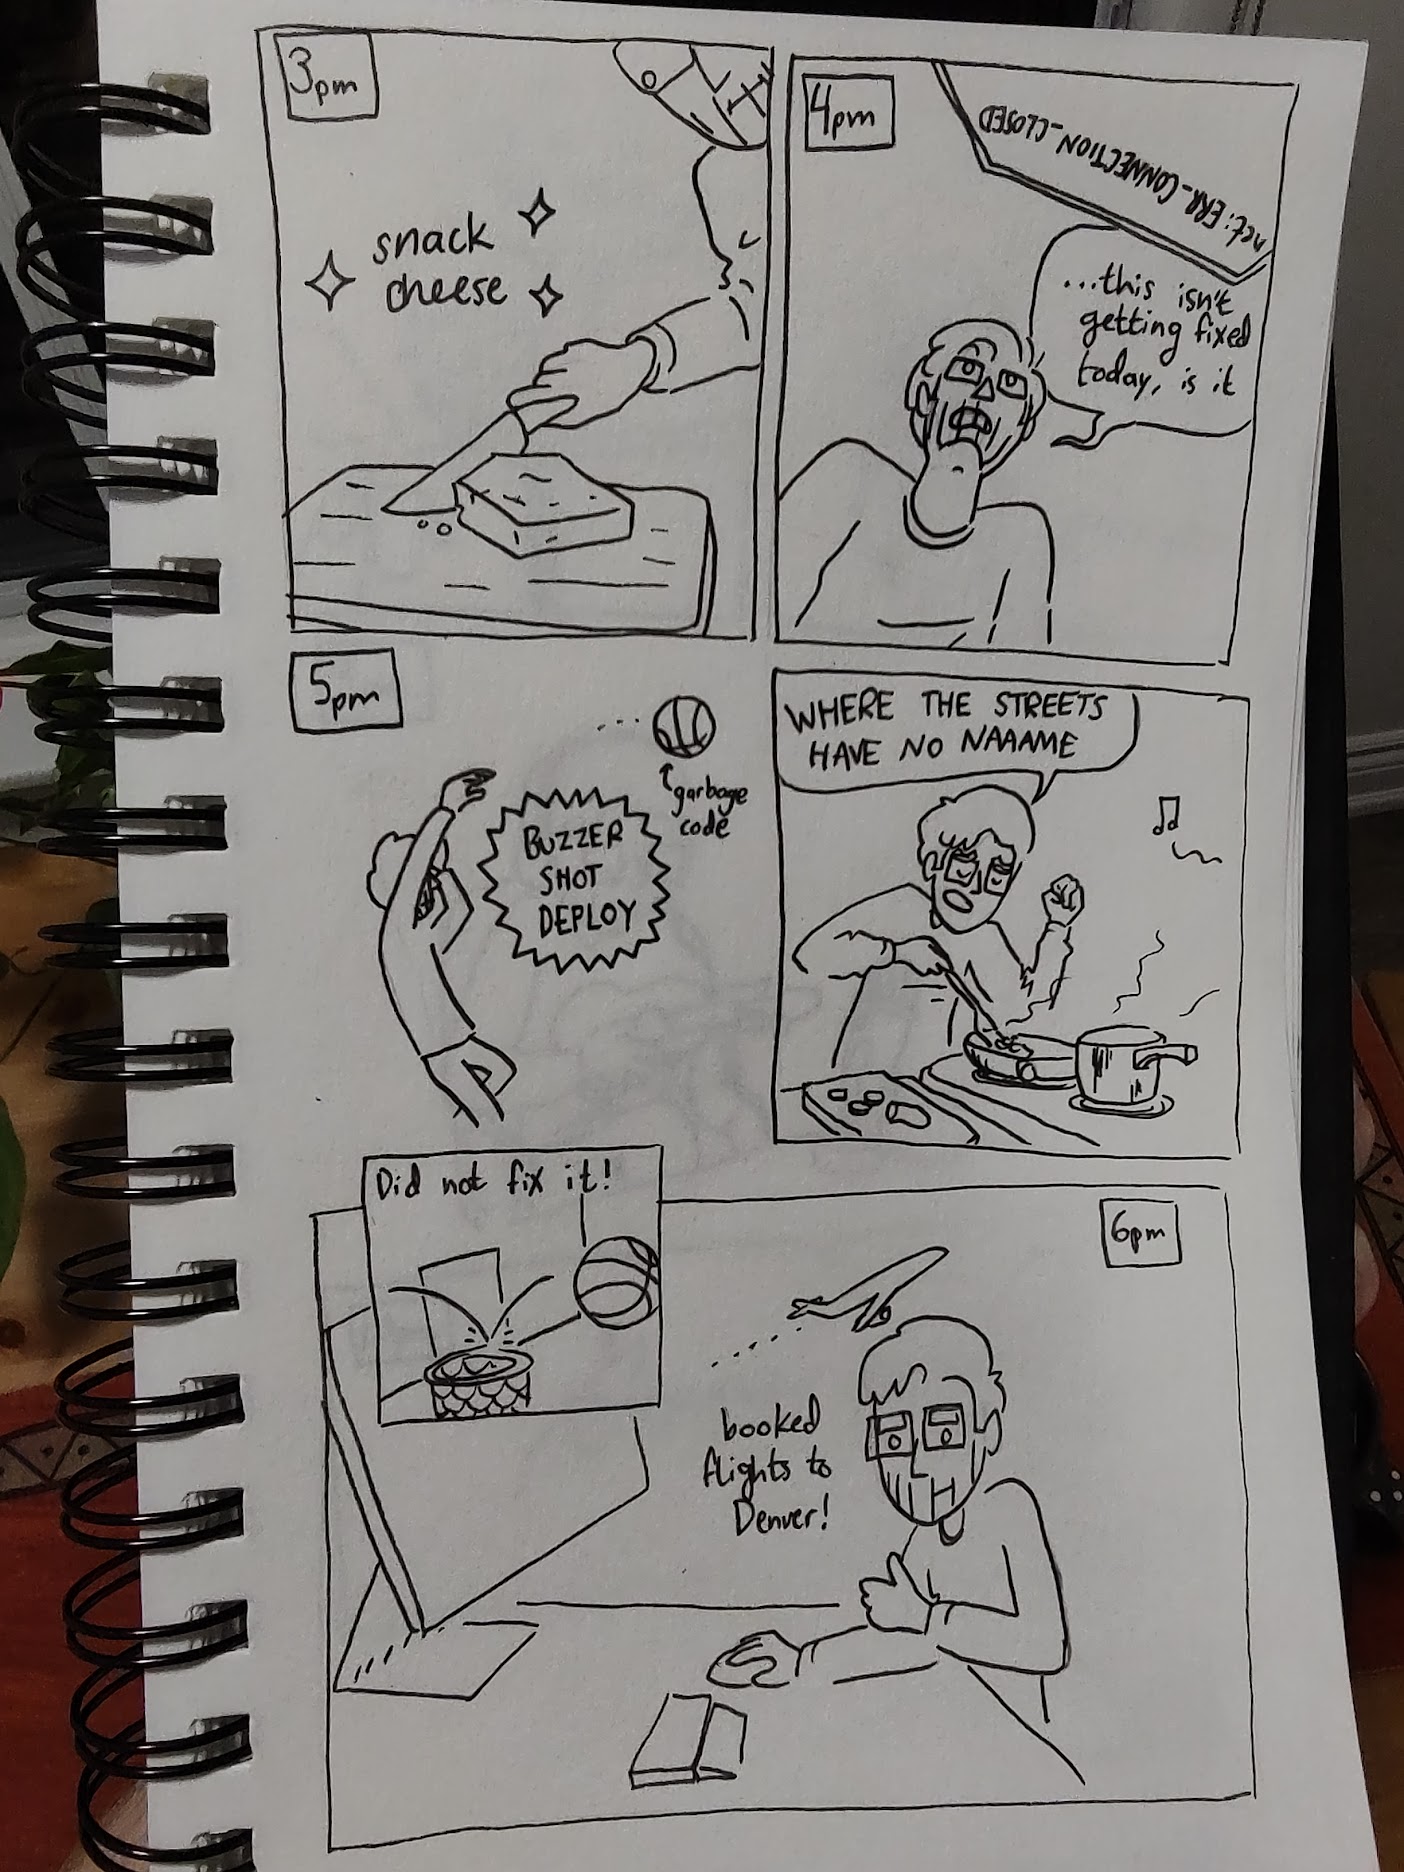 3pm
snack
cheese
4pm
net: ERR_CONNECTION_CLOSED
...this isn't
getting fixed
today, is it
5pm
garbage
code
BUZZER
SHOT
DEPLOY
WHERE THE STREETS
HAVE NO NAAAME
Did not fix it!
6pm
booked
flights to
Denver!